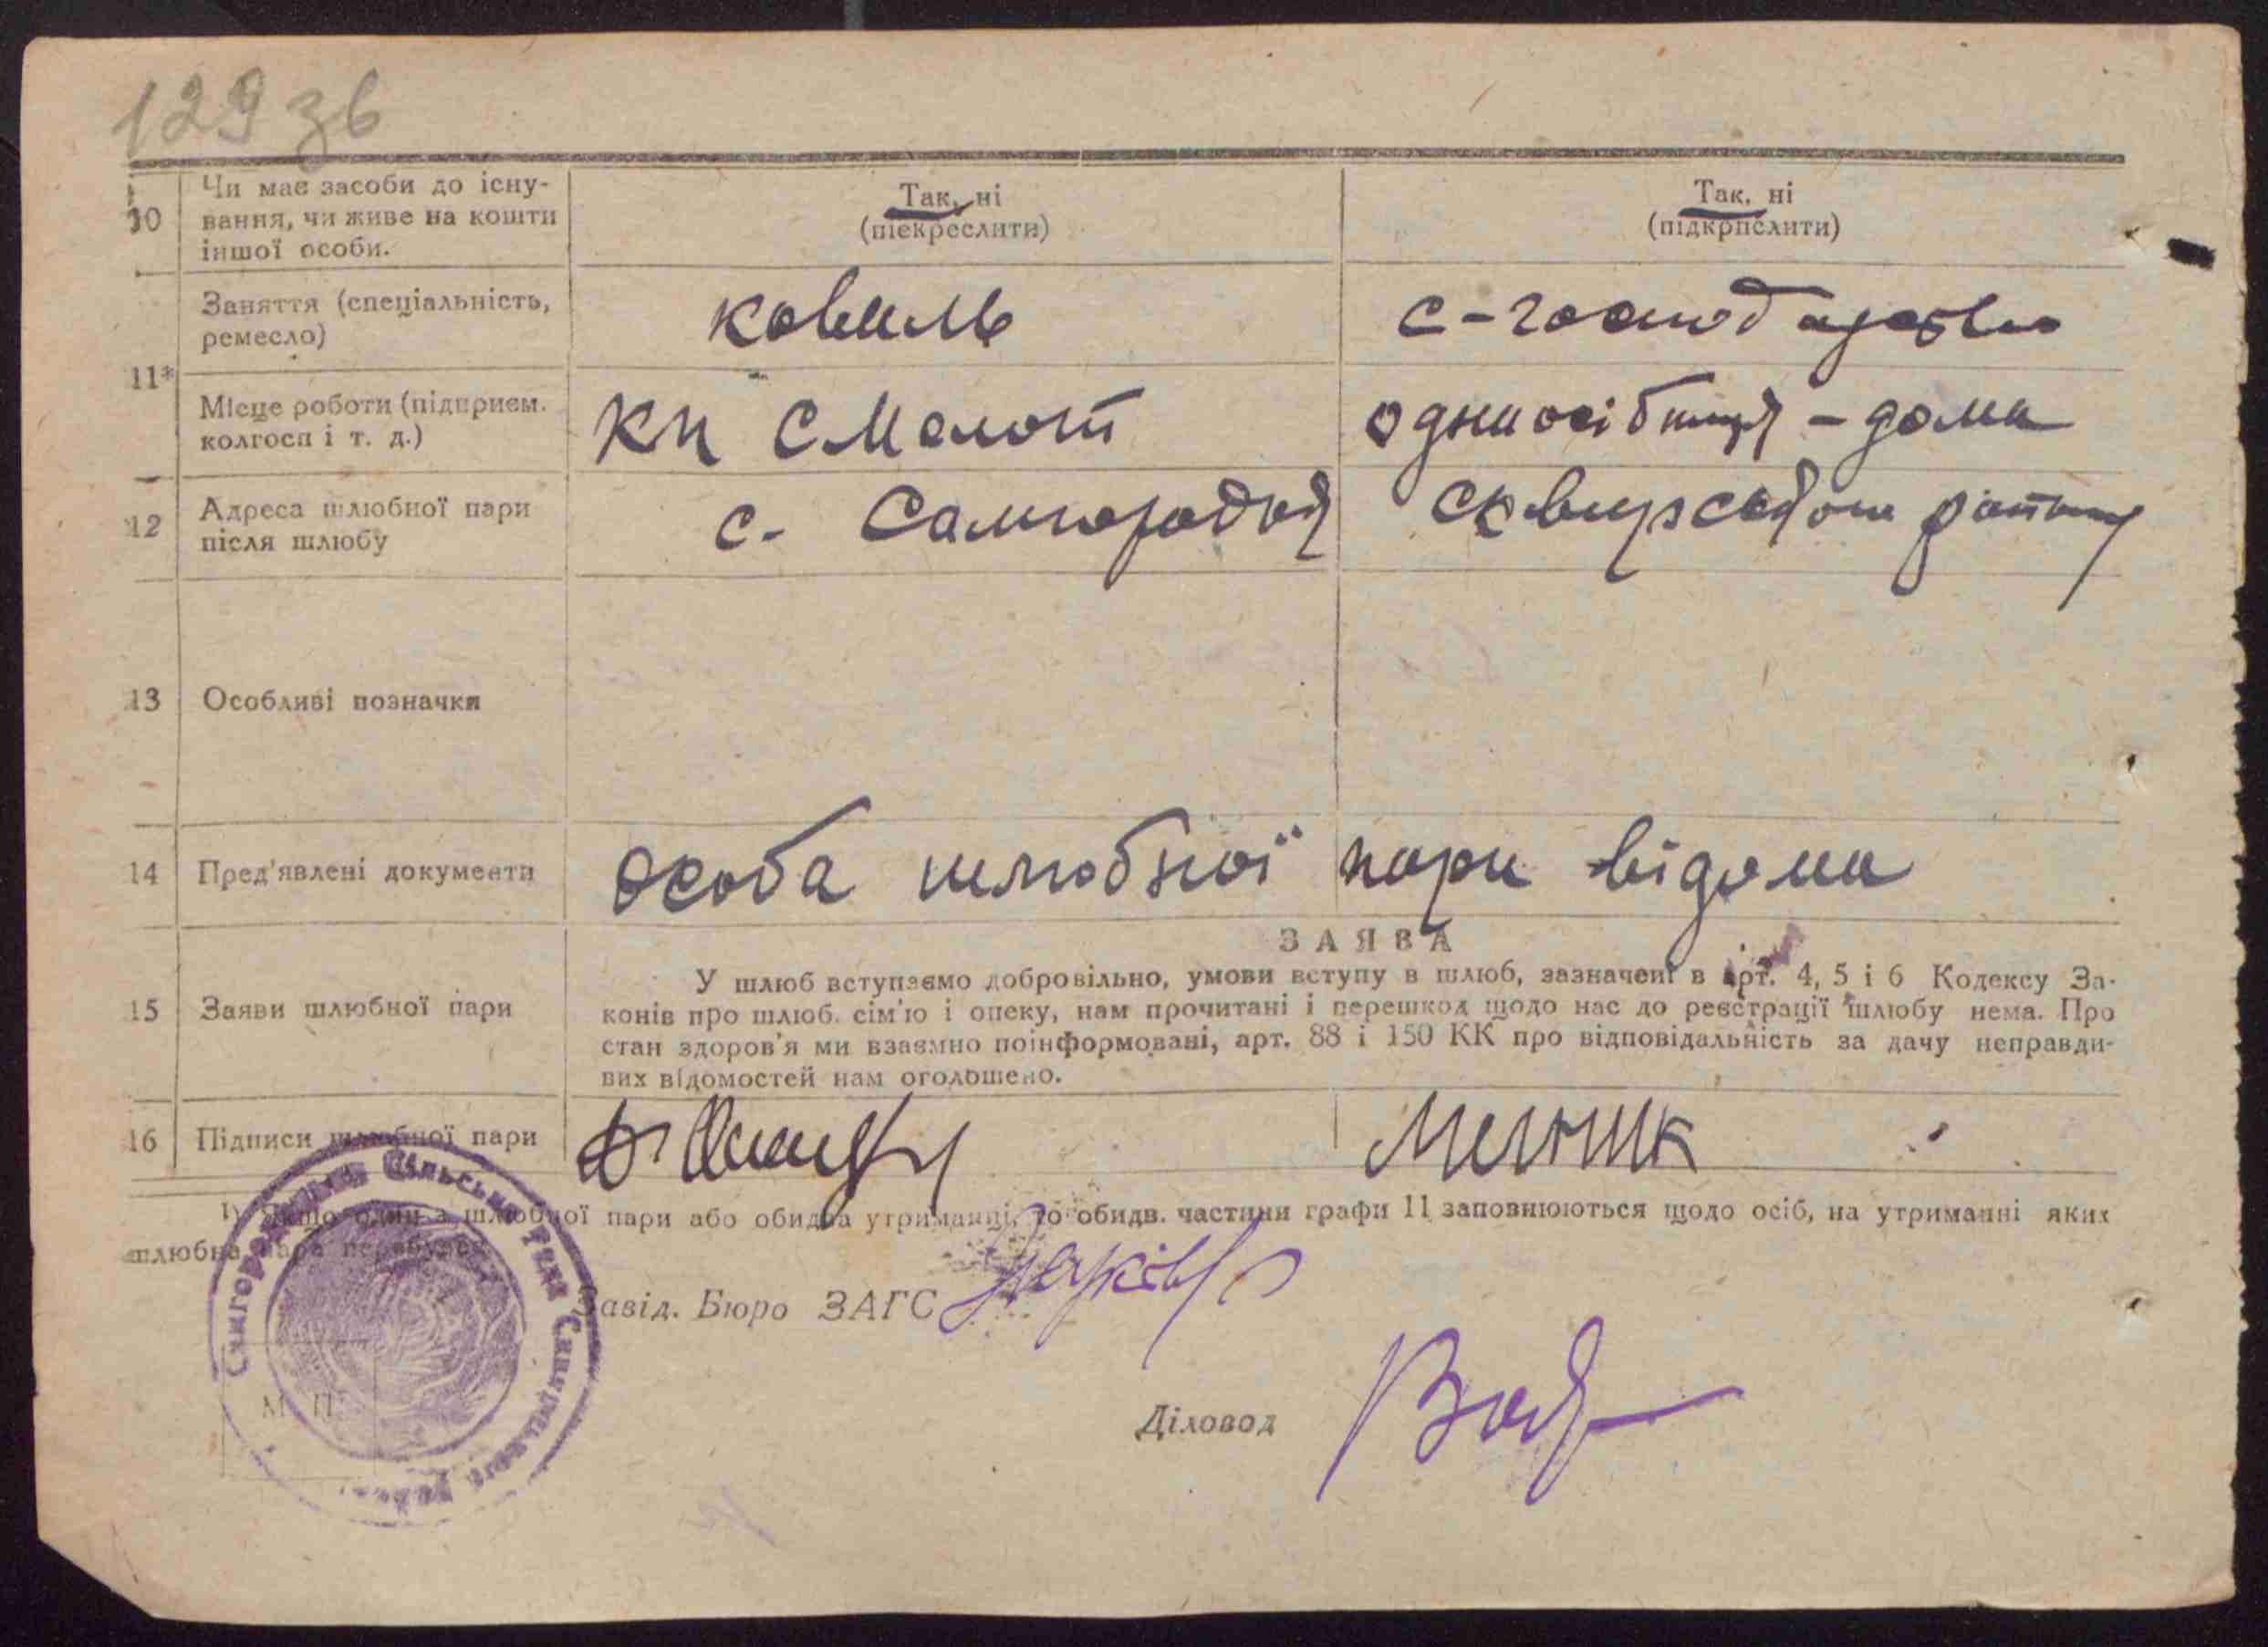 129 зв
10
Чи має засоби до існу-
вання, чи живе на кошти
іншої особи.
Так, ні
(піекреслити)
Так, ні
(підкрпслити)
11*
Заняття (спеціальність,
ремесло)
коваль
с-господарство
Місце роботи (підприєм.
колгосп і т. д.)
одноосібниця - дома
12
Адреса шлюбної пари
після шлюбу
с. Самгородок Сквирського району
13
Особливі позначки
14
Пред'явлені документи
особа шлюбної пари відома
ЗАЯВА
15
Заяви шлюбної пари
У шлюб вступаємо добровільно, умови вступу в шлюб, зазначені в арт. 4, 5 і 6 Кодексу За-
конів про шлюб. сім'ю і опеку, нам прочитані і перешкод щодо нас до реєстрації шлюбу нема. Про
стан здоров'я ми взаємно поінформовані, арт. 88 і 150 КК про відповідальність за дачу неправди-
вих відомостей нам оголошено.
16
Підписи шлюбної пари
Мельник
1) Якщо один з шлюбної пари або обидва утриманці, то обидв. частини графи 11 заповнюються щодо осіб, на утриманні яких
шлюбна пара перебуває
Завід. Бюро ЗАГС
М П
Діловод